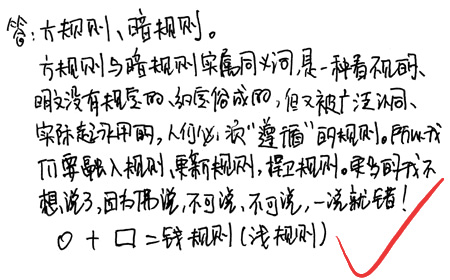 答:方规则、暗规则。
方规则与暗规则实属同义词,是一种看不见的、
明文没有规定的、约定俗成的,但又被广泛认同、
实际起作用的,人们必须"遵循"的规则。所以我
们要融入规则,更新规则,捍卫规则。更多的我不
想说了,因为佛说,不可说、不可说,一说就错!
○ + □ = 钱规则(浅规则)